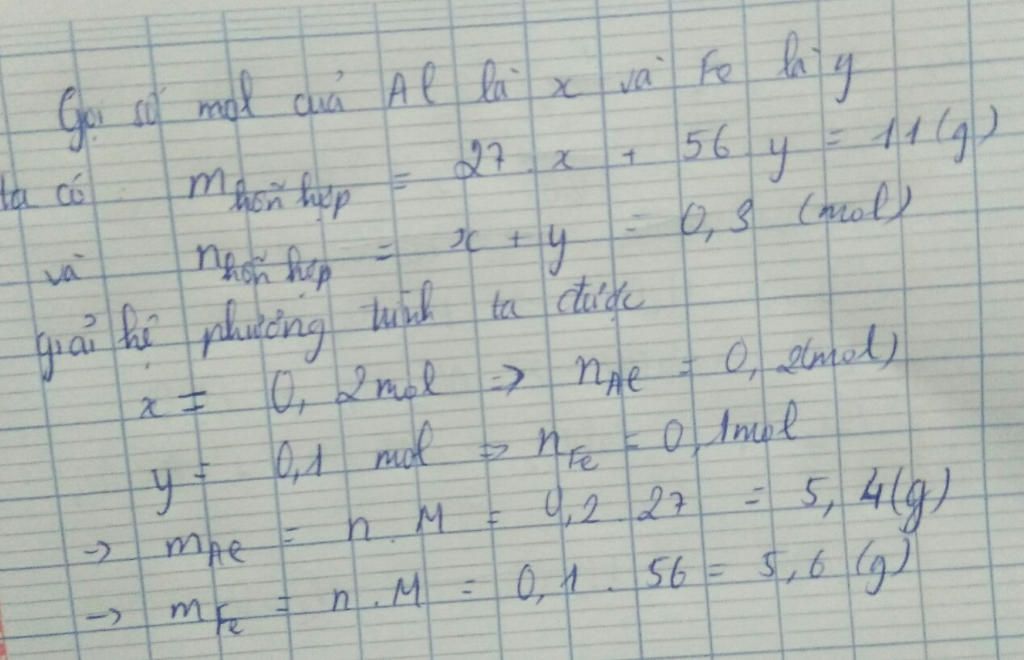 Gọi số mol của Al là x và Fe là y
ta có m hỗn hợp = 27. x + 56 y = 11(g)
và n hỗn hợp = x + y = 0,3 (mol)
giải hệ phương trình ta được
x = 0,2mol => nAl = 0,2(mol)
y = 0,1 mol => nFe = 0,1mol
-> mAl = n.M = 0,2.27 = 5,4(g)
-> mFe = n.M = 0,1.56 = 5,6 (g)